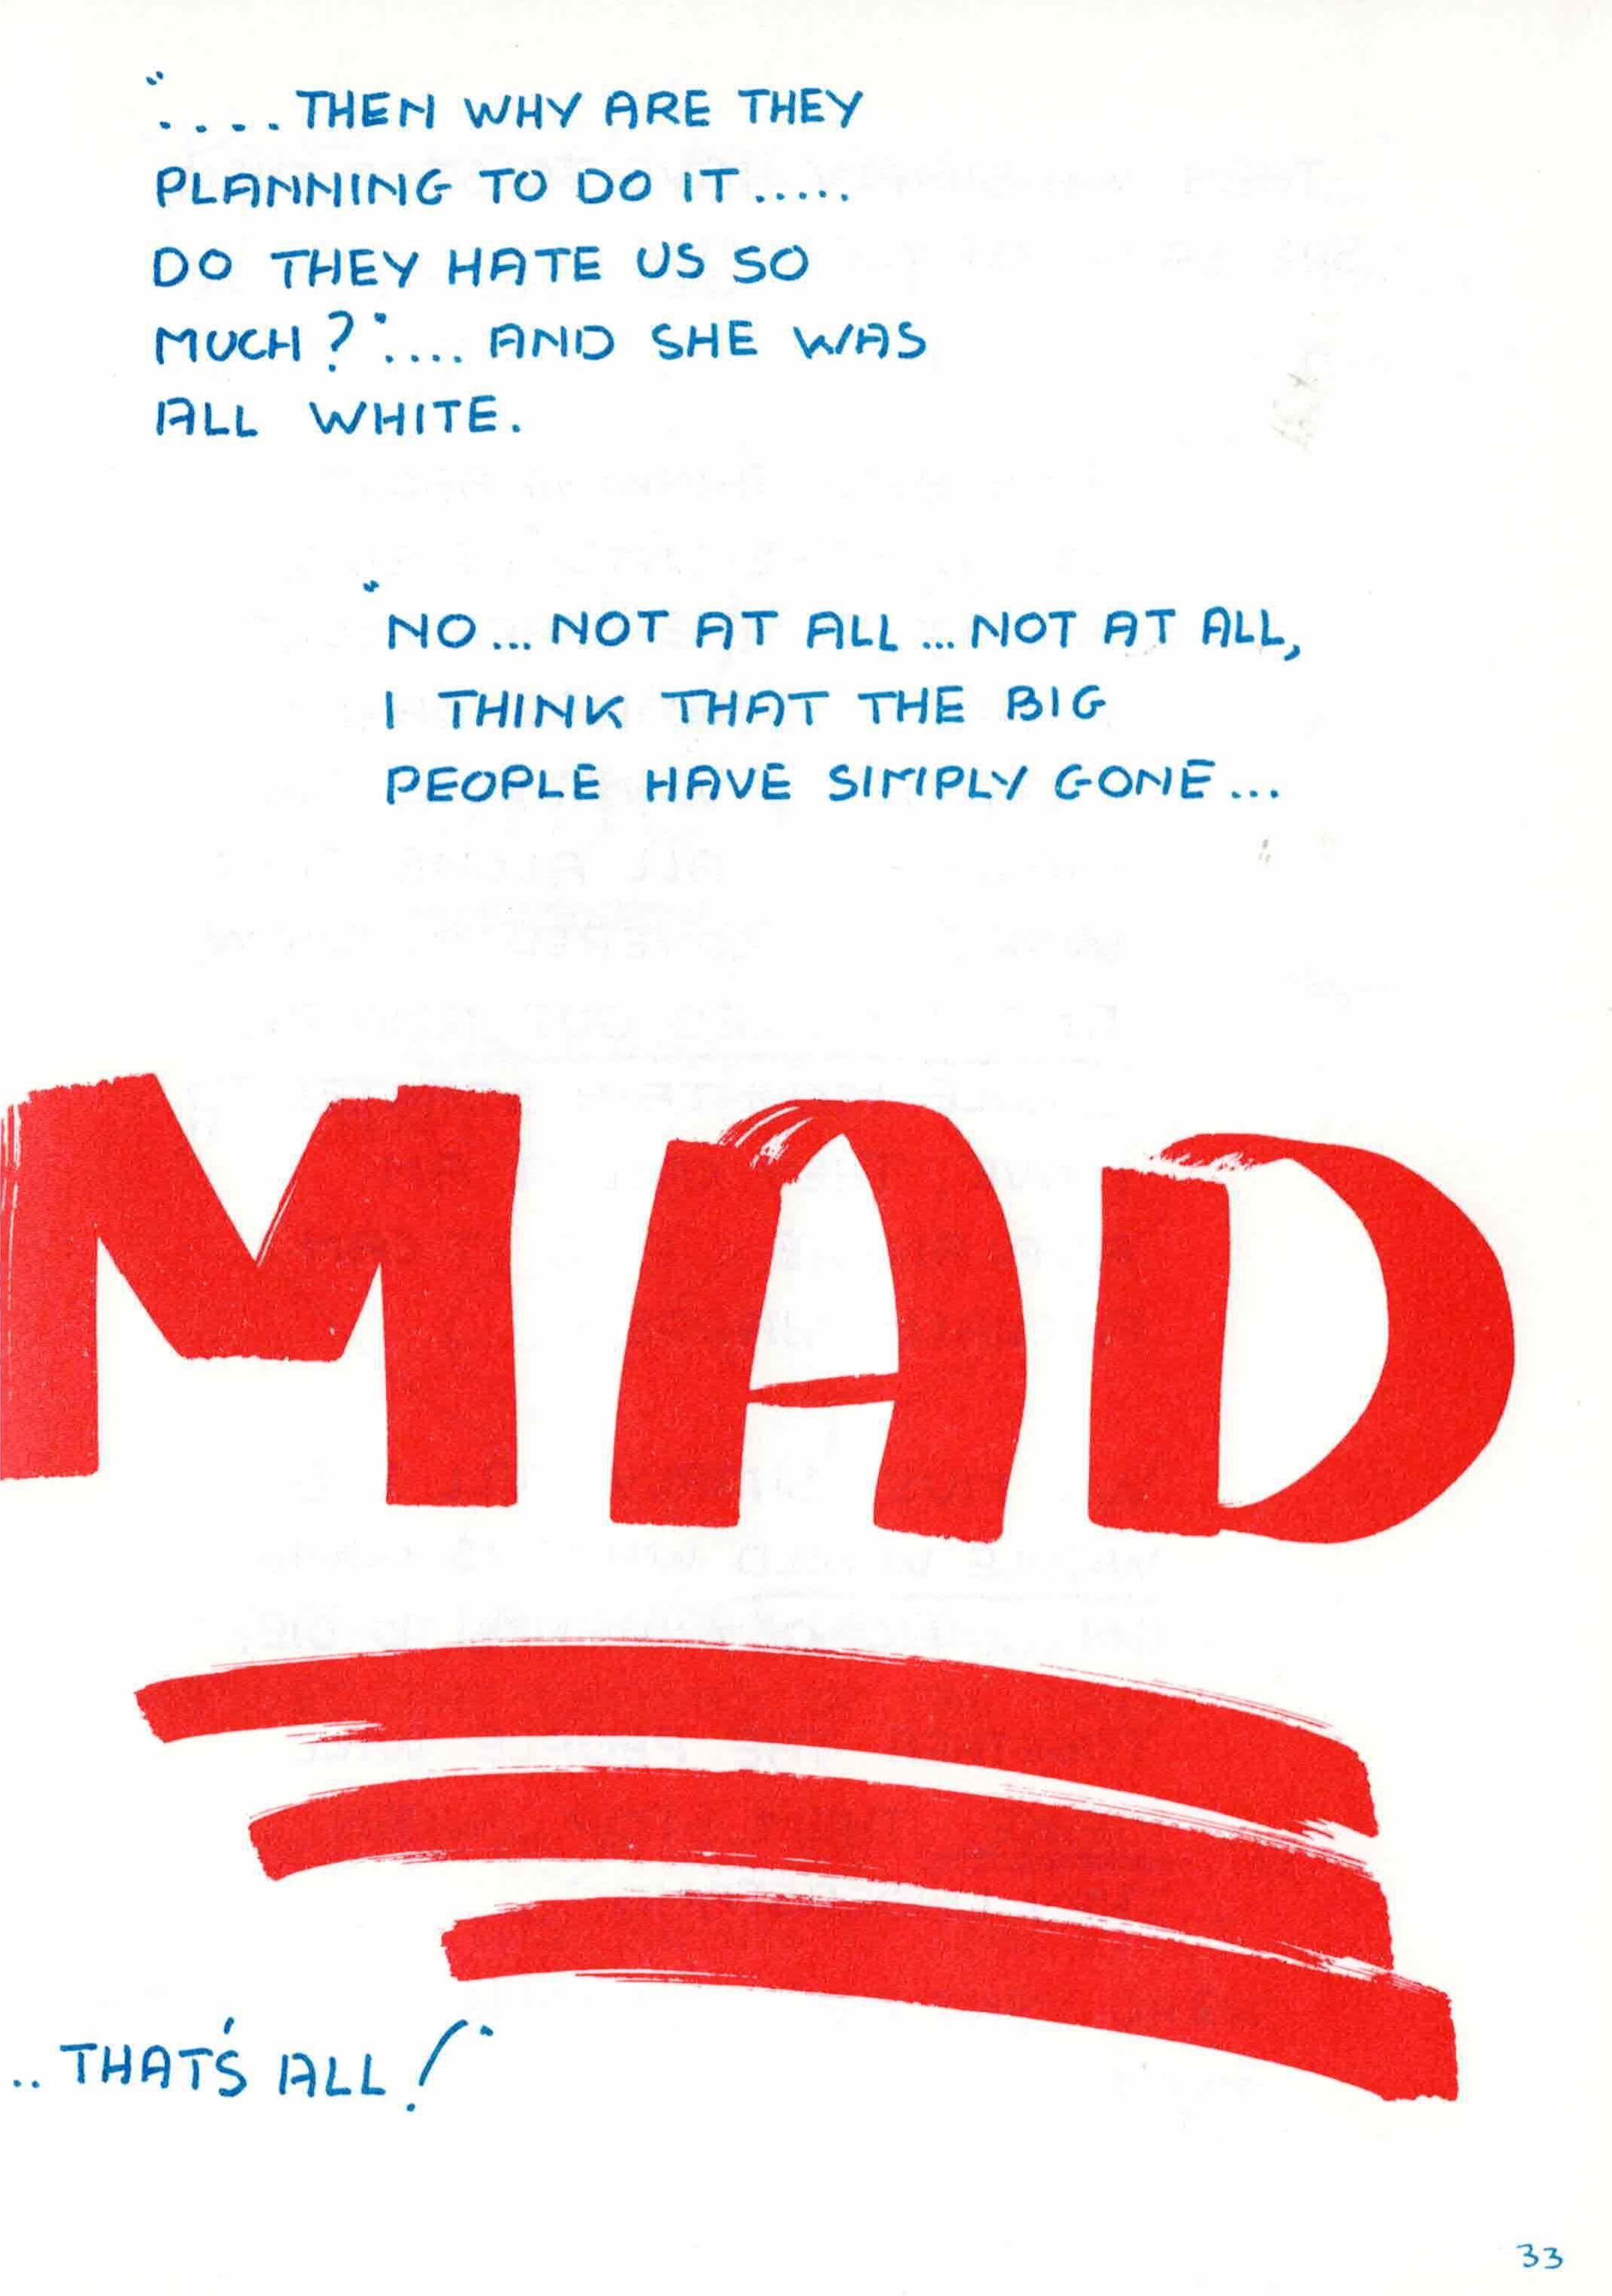 "....THEN WHY ARE THEY
PLANNING TO DO IT.....
DO THEY HATE US SO
MUCH?".... AND SHE WAS
ALL WHITE.
"NO... NOT AT ALL ... NOT AT ALL,
I THINK THAT THE BIG
PEOPLE HAVE SIMPLY GONE...
MAD
.. THAT'S ALL!"
33